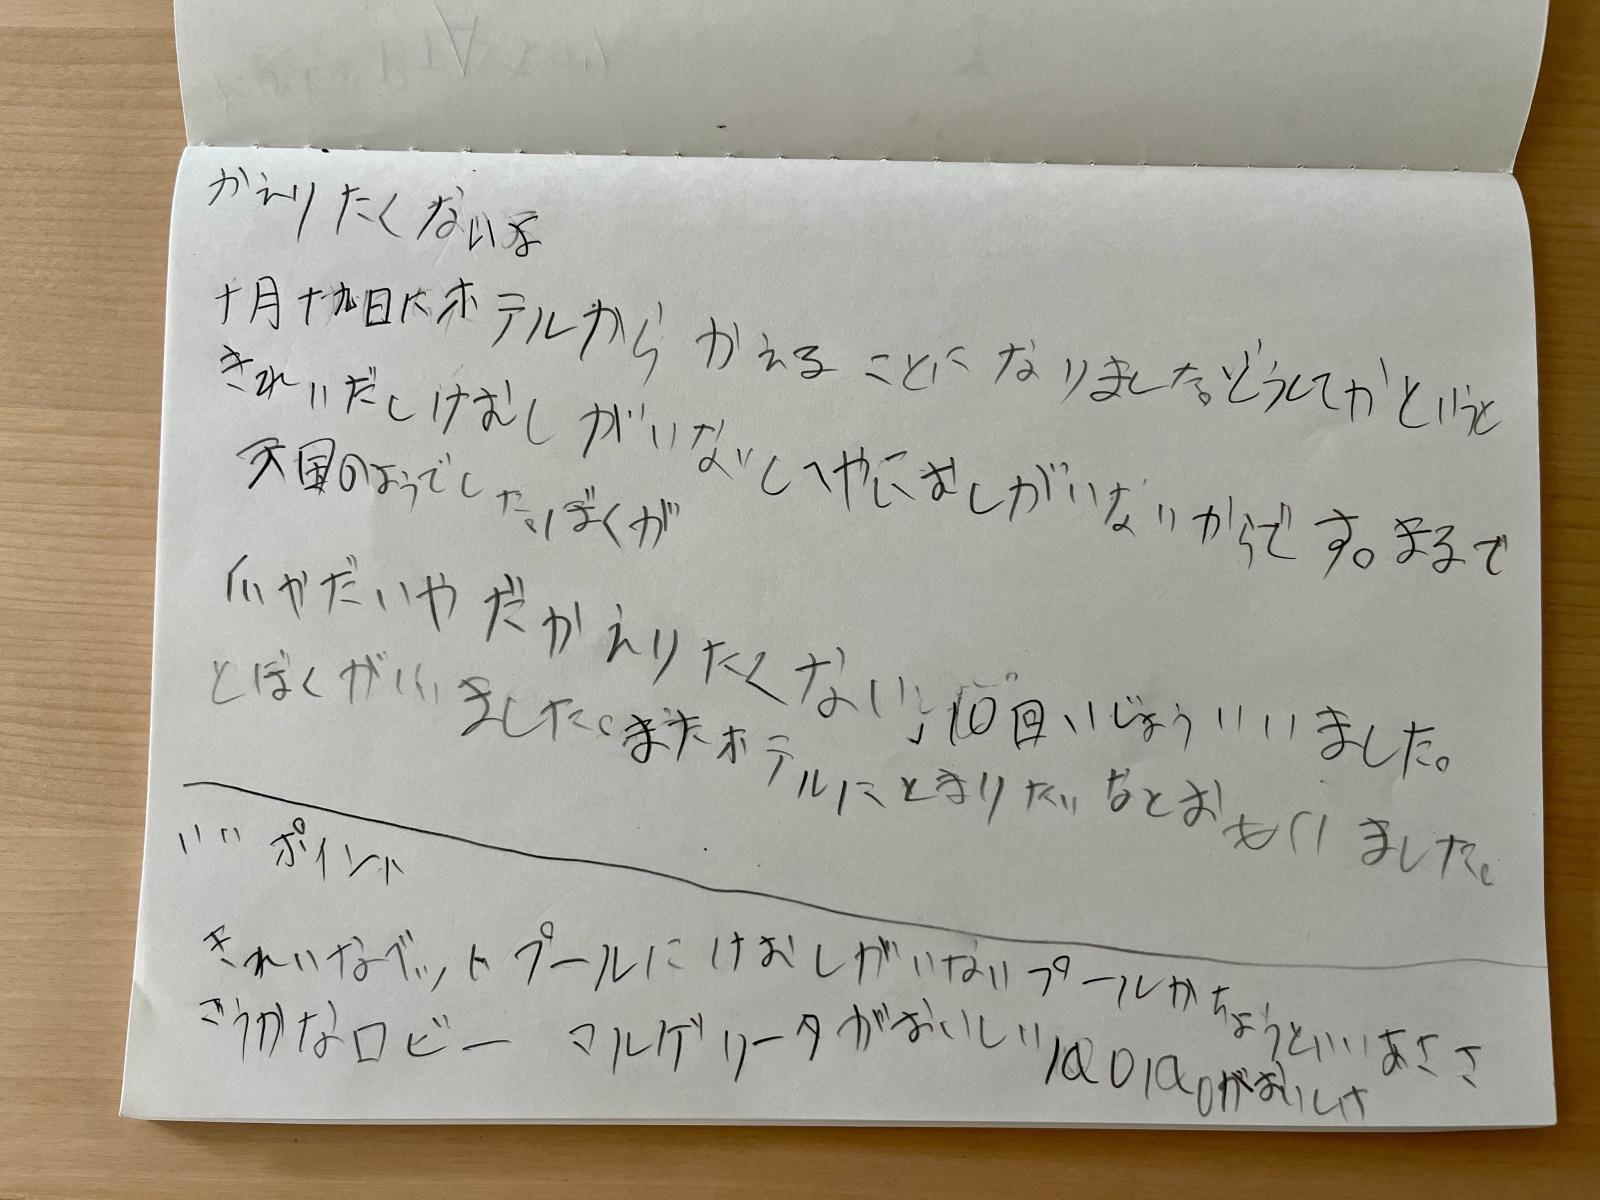 かえりたくないな
十月十九日にホテルからかえることになりました。どうしてかというと
きれいだしけむしがいないしへやにむしがいないからです。まるで
天国のようでした。ぼくが
「いやだいやだかえりたくない」10回いじょういいました。
とぼくがいいました。またホテルにとまりたいなとおもいました。
いいポイント
きれいなベットプールにけむしがいないプールがちょうどいいあささ
ごうかなロビー マルゲリータがおいしい
がおいしい